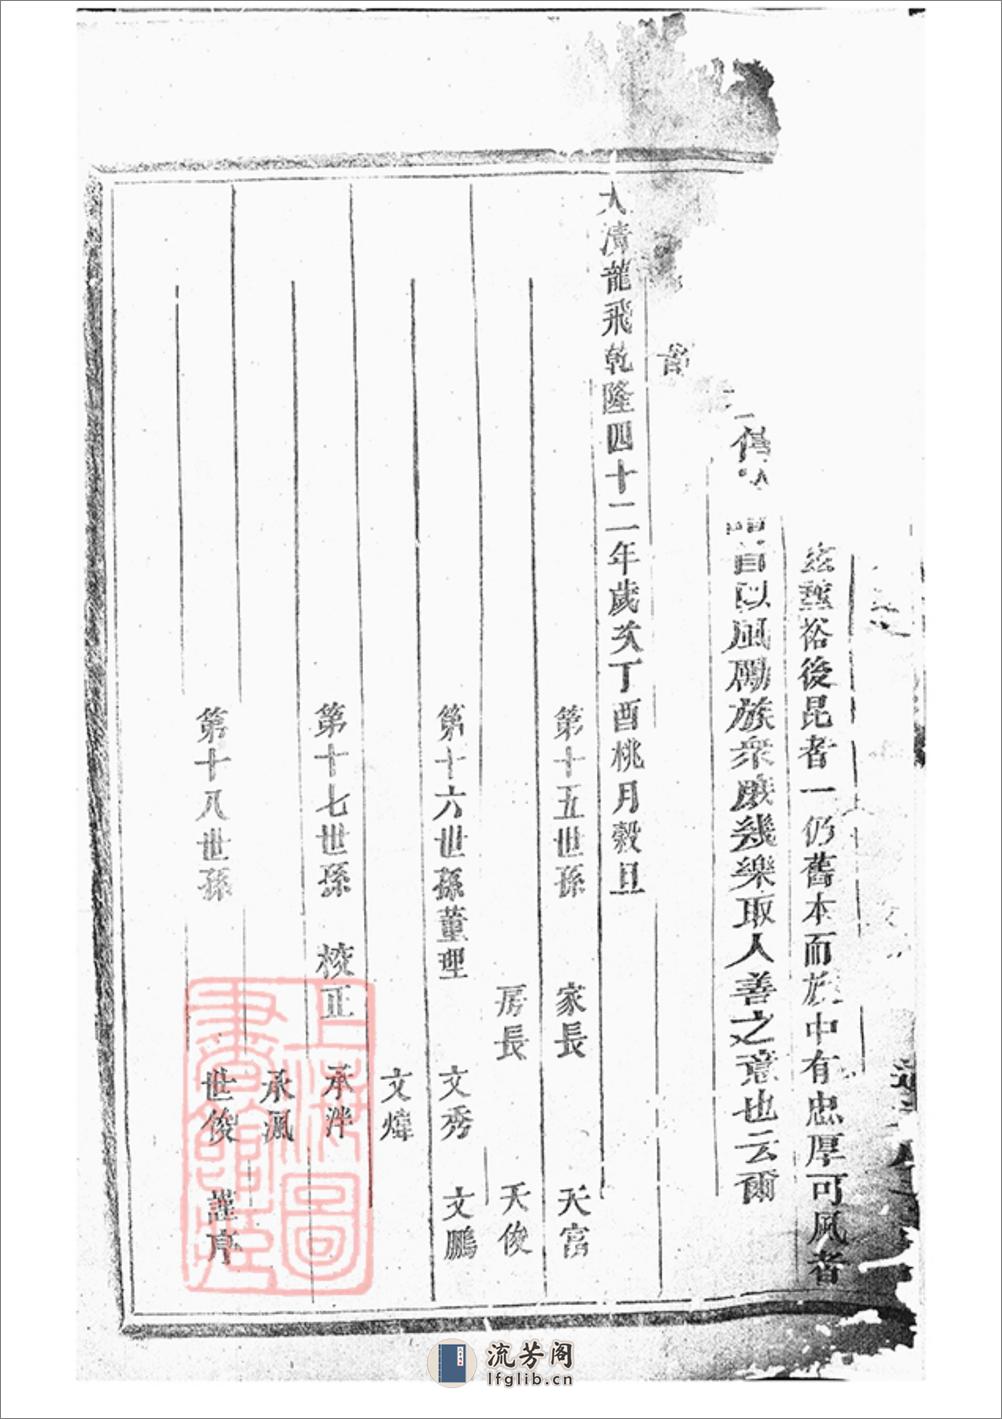 裕後昆者一仍舊本而族中有忠厚可風者
以風勵族衆庶幾樂取人善之意也云爾
大清龍飛乾隆四十二年歲次丁酉桃月榖旦
第十五世孫 家長 天富
房長 天俊
第十六世孫董理 文秀 文鵬
文煒
第十七世孫 校正 承泮
承渢
第十八世孫 世俊 謹序
上海圖書館藏
流芳阁
lfglib.cn